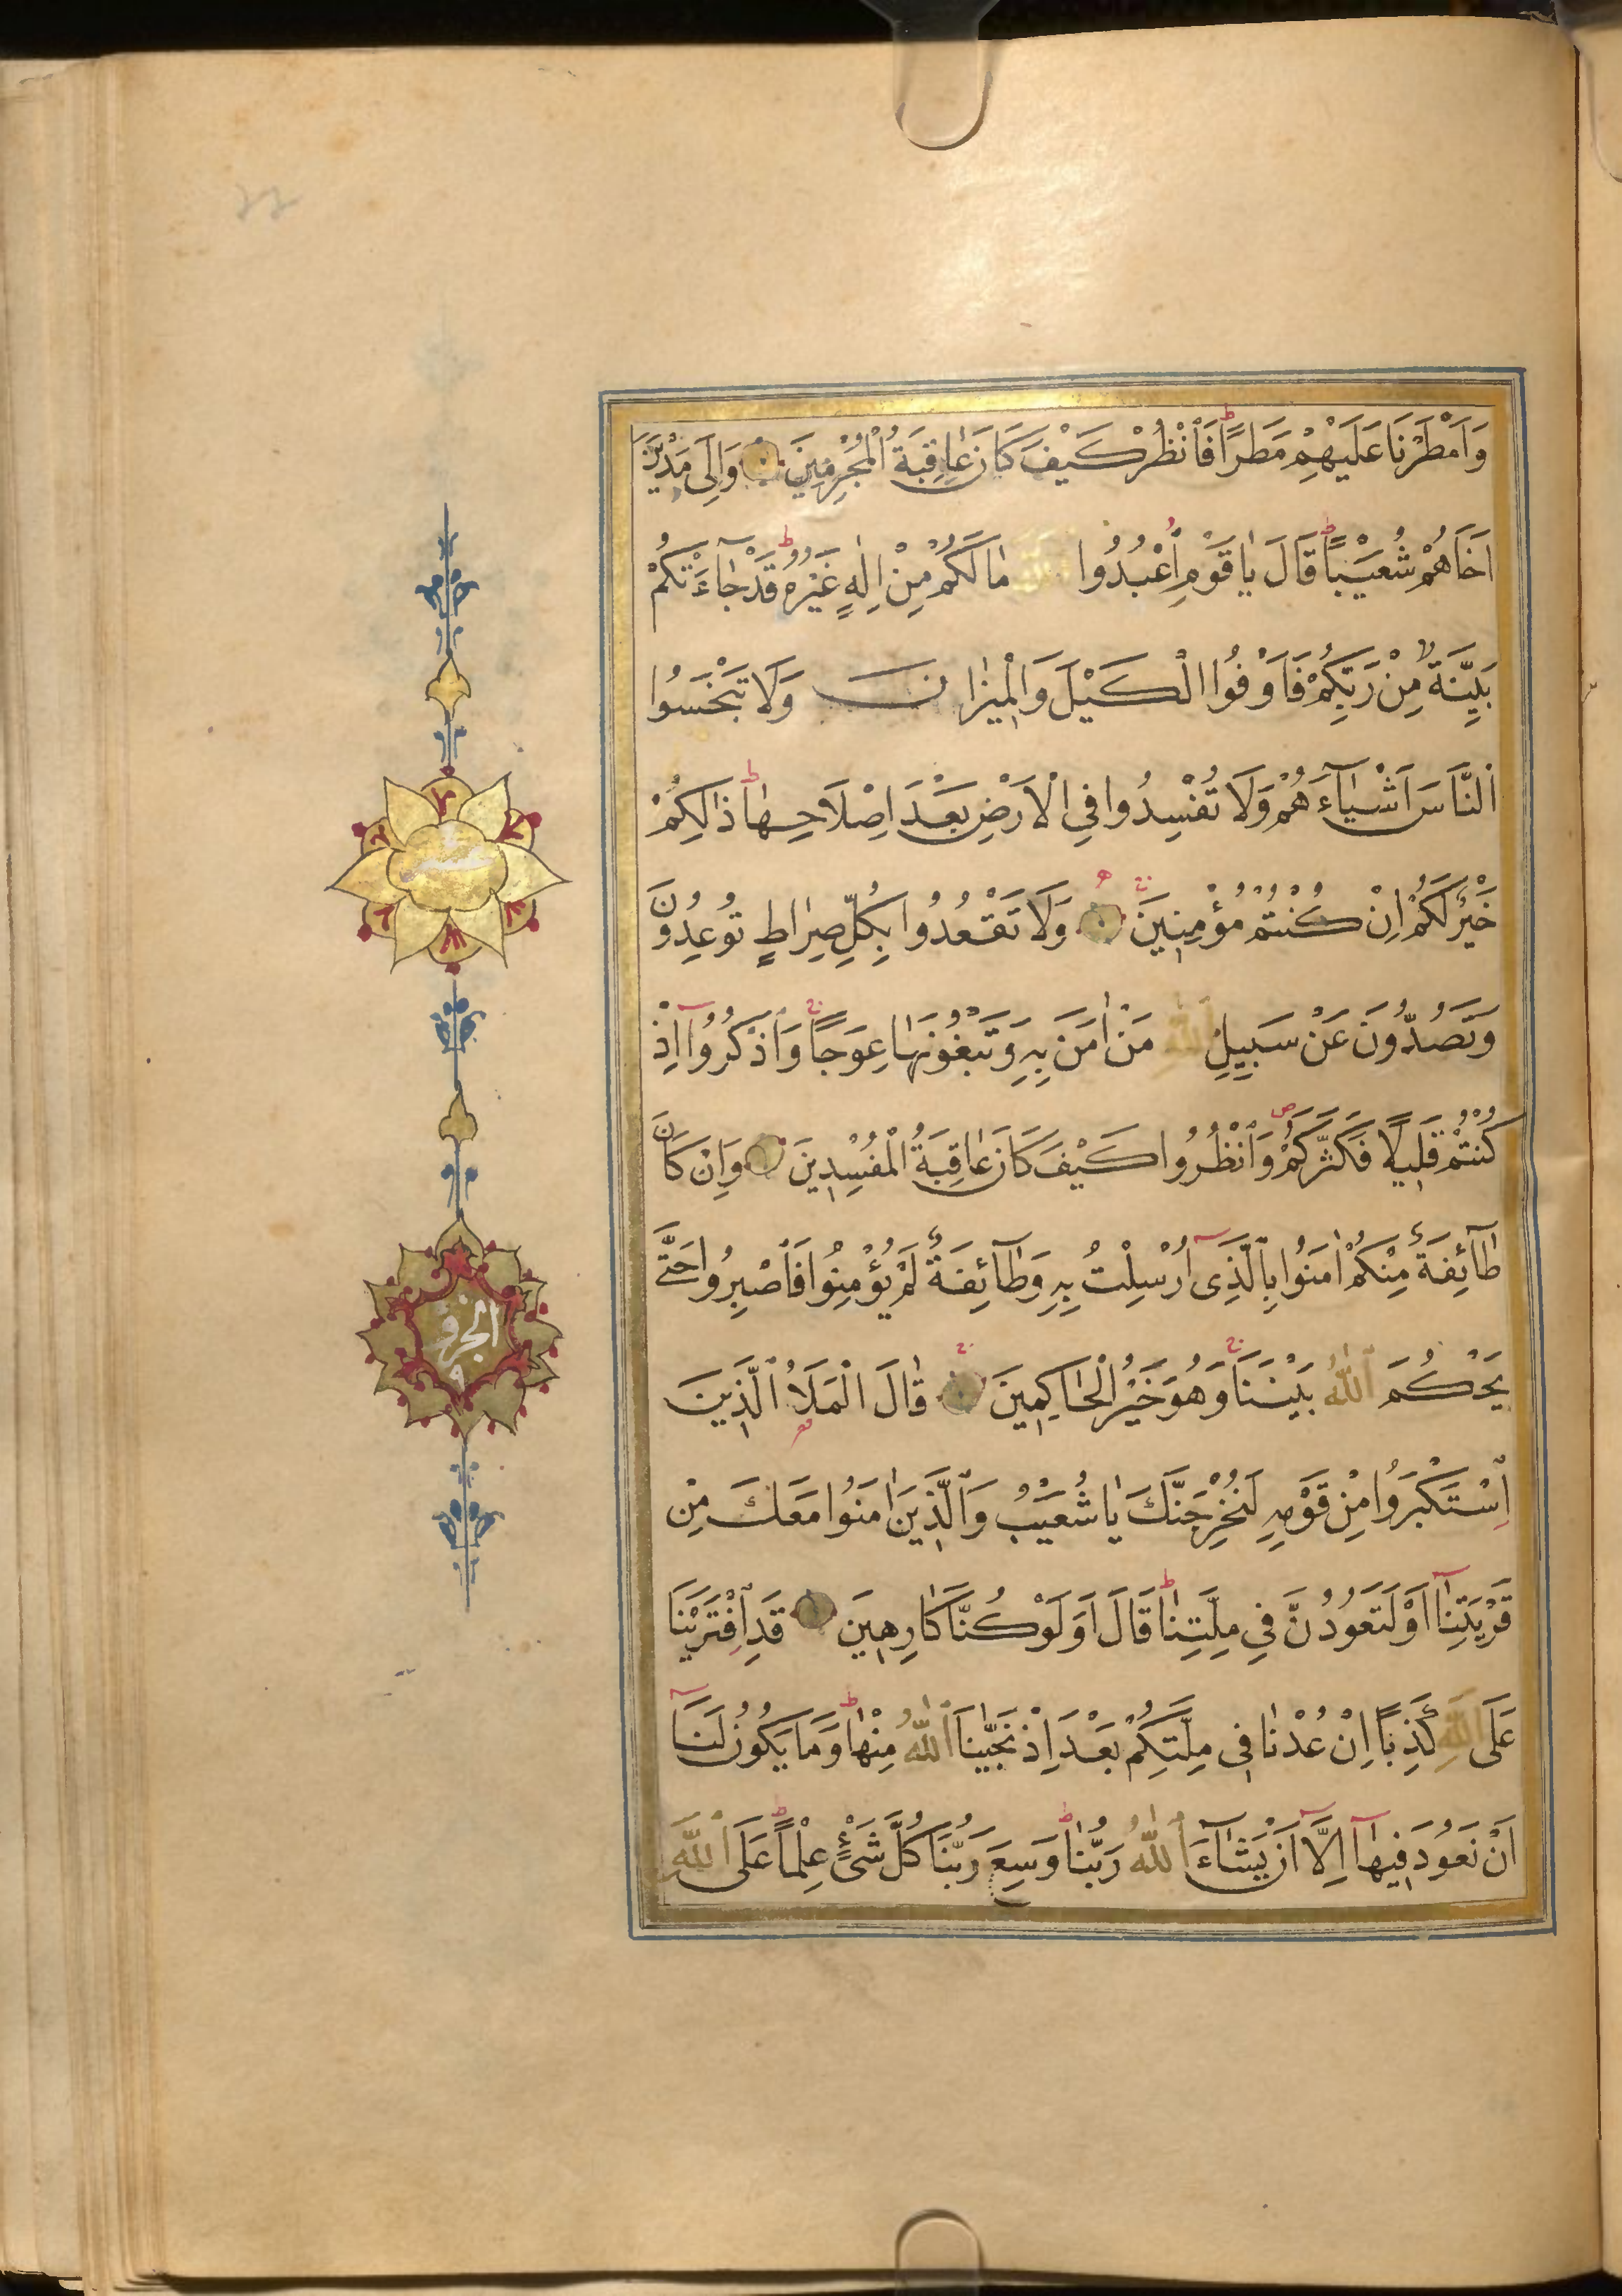 وَاَمْطَرْنَا عَلَيْهِمْ مَطَرًا فَانْظُرْ كَيْفَ كَانَ عَاقِبَةُ الْمُجْرِمِينَ وَاِلٰى مَدْيَنَ
اَخَاهُمْ شُعَيْبًا قَالَ يَا قَوْمِ اعْبُدُوا اللّٰهَ مَا لَكُمْ مِنْ اِلٰهٍ غَيْرُهُ قَدْ جَآءَتْكُمْ
بَيِّنَةٌ مِنْ رَبِّكُمْ فَاَوْفُوا الْكَيْلَ وَالْمِيزَانَ وَلَا تَبْخَسُوا
النَّاسَ اَشْيَآءَهُمْ وَلَا تُفْسِدُوا فِي الْاَرْضِ بَعْدَ اِصْلَاحِهَا ذٰلِكُمْ
خَيْرٌ لَكُمْ اِنْ كُنْتُمْ مُؤْمِنِينَ وَلَا تَقْعُدُوا بِكُلِّ صِرَاطٍ تُوعِدُونَ
وَتَصُدُّونَ عَنْ سَبِيلِ اللّٰهِ مَنْ اٰمَنَ بِهِ وَتَبْغُونَهَا عِوَجًا وَاذْكُرُوٓا اِذْ
كُنْتُمْ قَلِيلًا فَكَثَّرَكُمْ وَانْظُرُوا كَيْفَ كَانَ عَاقِبَةُ الْمُفْسِدِينَ وَاِنْ كَانَ
طَآئِفَةٌ مِنْكُمْ اٰمَنُوا بِالَّذِىٓ اُرْسِلْتُ بِهِ وَطَآئِفَةٌ لَمْ يُؤْمِنُوا فَاصْبِرُوا حَتّٰى
يَحْكُمَ اللّٰهُ بَيْنَنَا وَهُوَ خَيْرُ الْحَاكِمِينَ قَالَ الْمَلَاُ الَّذِينَ
اسْتَكْبَرُوا مِنْ قَوْمِهِ لَنُخْرِجَنَّكَ يَا شُعَيْبُ وَالَّذِينَ اٰمَنُوا مَعَكَ مِنْ
قَرْيَتِنَآ اَوْ لَتَعُودُنَّ فِي مِلَّتِنَا قَالَ اَوَلَوْ كُنَّا كَارِهِينَ قَدِ افْتَرَيْنَا
عَلَى اللّٰهِ كَذِبًا اِنْ عُدْنَا فِي مِلَّتِكُمْ بَعْدَ اِذْ نَجّٰينَا اللّٰهُ مِنْهَا وَمَا يَكُونُ لَنَآ
اَنْ نَعُودَ فِيهَآ اِلَّآ اَنْ يَشَآءَ اللّٰهُ رَبُّنَا وَسِعَ رَبُّنَا كُلَّ شَىْءٍ عِلْمًا عَلَى اللّٰهِ
عشر
الجزؤ
٩